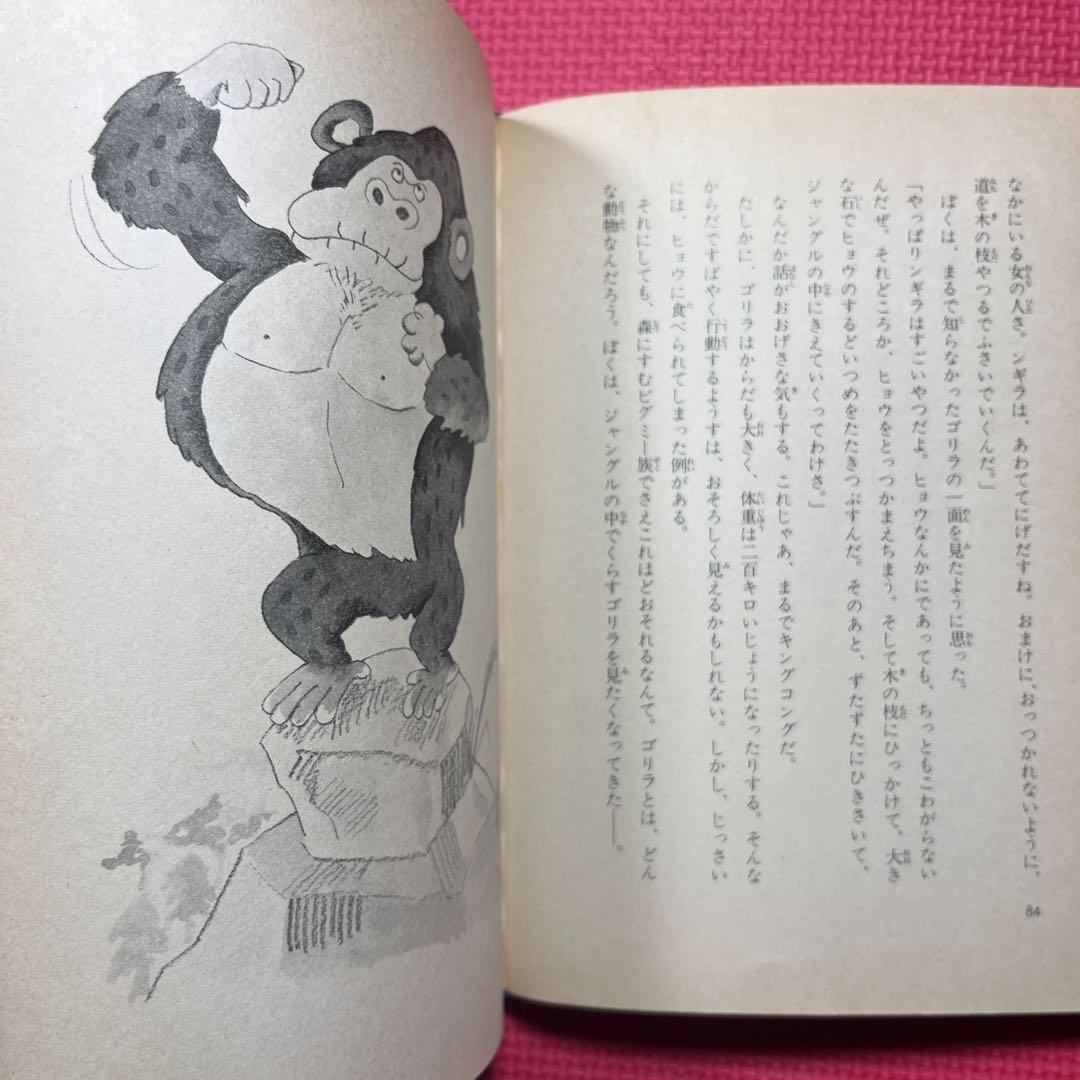 なかにいる女の人さ。ンギラは、あわててにげだすね。おまけに、おっつかれないように、
道を木の枝やつるでふさいでいくんだ。」
ぼくは、まるで知らなかったゴリラの一面を見たように思った。
「やっぱりンギラはすごいやつだよ。ヒョウなんかにであっても、ちっともこわがらない
んだぜ。それどころか、ヒョウをとっつかまえちまう。そして木の枝にひっかけて、大き
な石でヒョウのするどいつめをたたきつぶすんだ。そのあと、ずたずたにひきさいて、
ジャングルの中にきえていくってわけさ。」
なんだか話がおおげさな気もする。これじゃあ、まるでキングコングだ。
たしかに、ゴリラはからだも大きく、体重は二百キロいじょうになったりする。そんな
からだですばやく行動するようすは、おそろしく見えるかもしれない。しかし、じっさい
には、ヒョウに食べられてしまった例がある。
それにしても、森にすむピグミー族でさえこれほどおそれるなんて。ゴリラとは、どん
な動物なんだろう。ぼくは、ジャングルの中でくらすゴリラを見たくなってきた——。
84